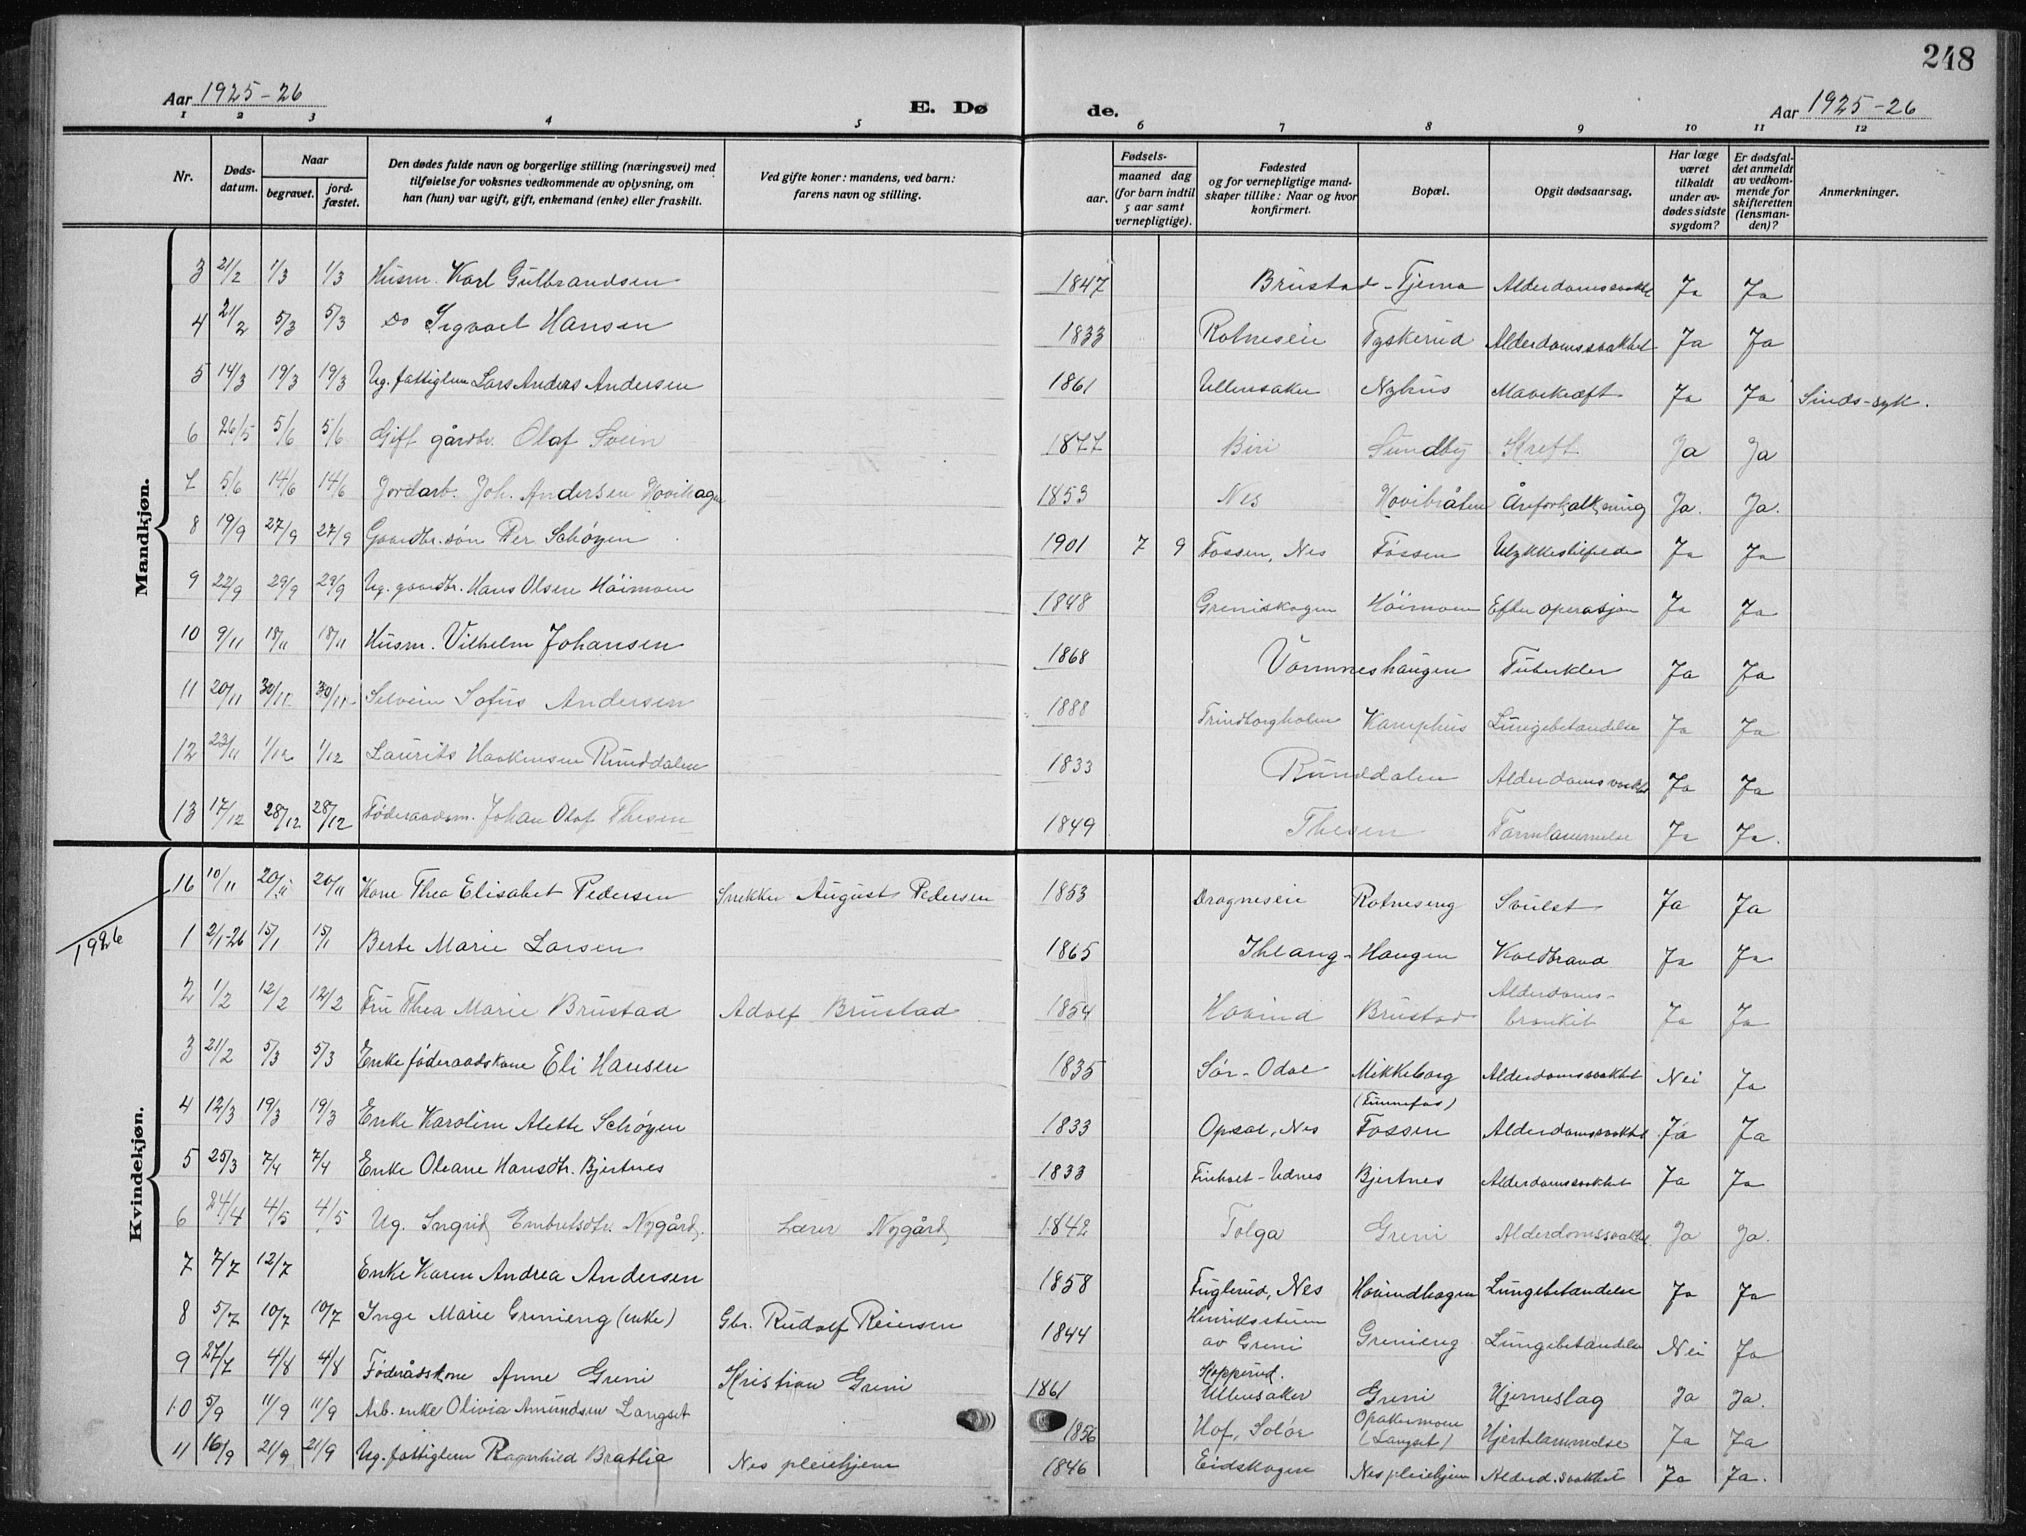 248
Aar 1925-26
E. Dø
de.
Aar 1925-26
1 2 3 4 5 6 7 8 9 10 11 12
Nr.
Døds-
datum.
Naar
begravet.
jord-
fæstet.
Den dødes fulde navn og borgerlige stilling (næringsvei) med
tilføielse for voksnes vedkommende av oplysning, om
han (hun) var ugift, gift, enkemand (enke) eller fraskilt.
Ved gifte koner: mandens, ved barn:
farens navn og stilling.
Fødsels-
aar.
maaned dag
(for barn indtil
5 aar samt
vernepligtige).
Fødested
og for vernepligtige mand-
skaper tillike: Naar og hvor
konfirmert.
Bopæl.
Opgit dødsaarsag.
Har læge
været
tilkaldt
under av-
dødes sidste
sygdom?
Er dødsfal-
det anmeldt
av vedkom-
mende for
skifteretten
(lensman-
den)?
Anmerkninger.
Mandkjøn.
3 21/2 1/3 1/3 Husm. Karl Gulbrandsen 1847 Brustad-Tjerna Alderdomssvakhet Ja Ja
4 21/2 5/3 5/3 Do Sigvart Hansen 1833 Rotneseie Tyskerud Alderdomssvakhet Ja Ja
5 14/3 19/3 19/3 Ug. fattiglem Lars Anders Andersen 1861 Ullensaker Nyhus Mavekræft Ja Ja Sinds-syk.
6 26/5 5/6 5/6 Gift gårdbr. Olaf Svein 1877 Biri Sundby Kreft Ja Ja
7 5/6 14/6 14/6 Jordarb. Joh. Andersen Hovihagen 1853 Nes Hovibråten Åreforkalkning Ja. Ja.
8 19/9 27/9 27/9 Gaardbr. søn Per Schøyen 1901 7 9 Fossen, Nes Fossen Ulykkestilfelde Ja Ja
9 22/9 29/9 29/9 Ug. gaardbr. Hans Olsen Høimoen 1848 Greniskogen Høimoen Efter operasjon Ja Ja
10 9/11 18/11 18/11 Husm. Vilhelm Johansen 1868 Vormneshaugen Tuberkler Ja Ja
11 20/11 30/11 30/11 Selveier Sofus Andersen 1888 Trindborgholm Kamphus Lungebetændelse Ja Ja
12 23/11 1/12 1/12 Laurits Haakensen Runddalen 1833 Runddalen Alderdomssvakhet Ja Ja
13 17/12 28/12 28/12 Føderaadsm. Johan Olaf Thesen 1849 Thesen Tarmlammelse Ja Ja.
Kvindekjøn.
16 10/11 20/11 20/11 Kone Thea Elisabet Pedersen Snekker August Pedersen 1853 Dragneseie Rotneseng Svulst Ja Ja
1926
1 2/1-26 15/1 15/1 Berte Marie Larsen 1865 Ihlang-Haugen Koldbrand Ja Ja
2 1/2 12/2 12/2 Fru Thea Marie Brustad Adolf Brustad 1854 Hovind Brustad Alderdoms-
bronkit Ja Ja
3 21/2 5/3 5/3 Enke føderaadskone Eli Hansen 1835 Sør-Odal Mikkelborg Alderdomssvakhet Nei Ja
4 12/3 19/3 19/3 Enke Karoline Alette Schøyen 1833 Opsal, Nes (Funnefos)
Fossen Alderdomssvakhet Ja Ja
5 25/3 7/4 7/4 Enke Oleane Hansdtr. Bjertnes 1833 Friholt-Udnes Bjertnes Alderdomssvakhet Ja Ja
6 24/4 4/5 4/5 Ug. Ingrid Embretsdtr. Nygård. Lærer Nygård 1842 Tolga Greni Alderdomssvakhet. Ja Ja.
7 7/7 12/7 Enke Karen Andrea Andersen 1858 Fuglerud, Nes Hovindhagen Lungebetændelse Ja Ja
8 5/7 10/7 10/7 Inge Marie Grenieng (enke) Gbr. Rudolf Reiersen 1844 Hinriksstuen
av Greni Grenieng Lungebetændelse Nei Ja
9 27/7 4/8 4/8 Føderådskone Anne Greni Kristian Greni 1861 Kopperud.
Ullensaker Greni Hjerneslag Ja Ja.
10 5/9 11/9 11/9 Arb. enke Olivia Amundsen Langset 1856 Hof, Solør Opakermoen
(Langset) Hjertelammelse Ja Ja
11 16/9 21/9 21/9 Ug. fattiglem Ragnhild Bratlia Nes pleiehjem 1846 Eidskogen Nes pleiehjem Alderd. svakhet Ja Ja.